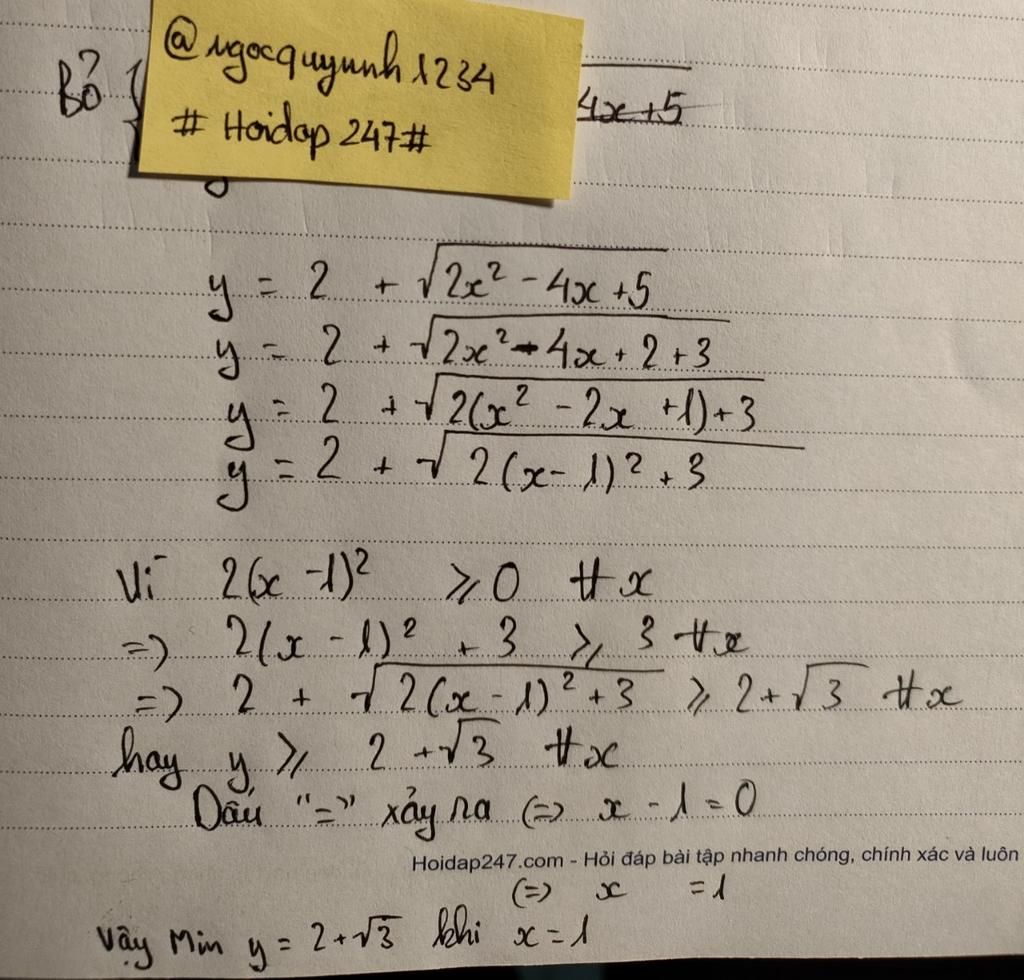 @ngocquyunh1234
# Hoidap 247#
Bỏ { 4x+5
y = 2 + √2x² - 4x +5
y = 2 + √2x² - 4x + 2 + 3
y = 2 + √2(x² - 2x +1) + 3
y = 2 + √2(x-1)² + 3
Vì 2(x -1)² ≥ 0 ∀x
=> 2(x - 1)² + 3 ≥ 3 ∀x
=> 2 + √2(x - 1)² + 3 ≥ 2+√3 ∀x
hay y ≥ 2 +√3 ∀x
Dấu "=" xảy ra (=) x - 1 = 0
Hoidap247.com - Hỏi đáp bài tập nhanh chóng, chính xác và luôn
(=) x = 1
Vậy Min y = 2+√3 khi x = 1